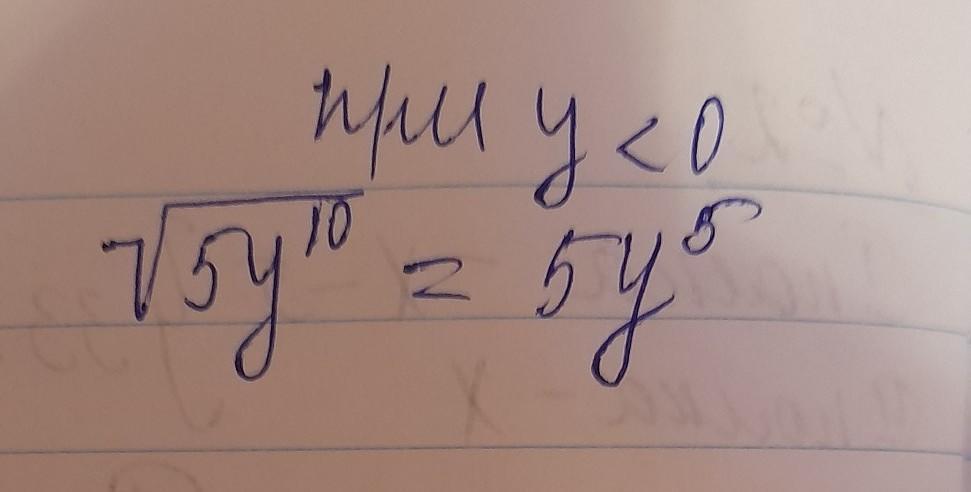 при y < 0
√5y¹⁰ = 5y⁵